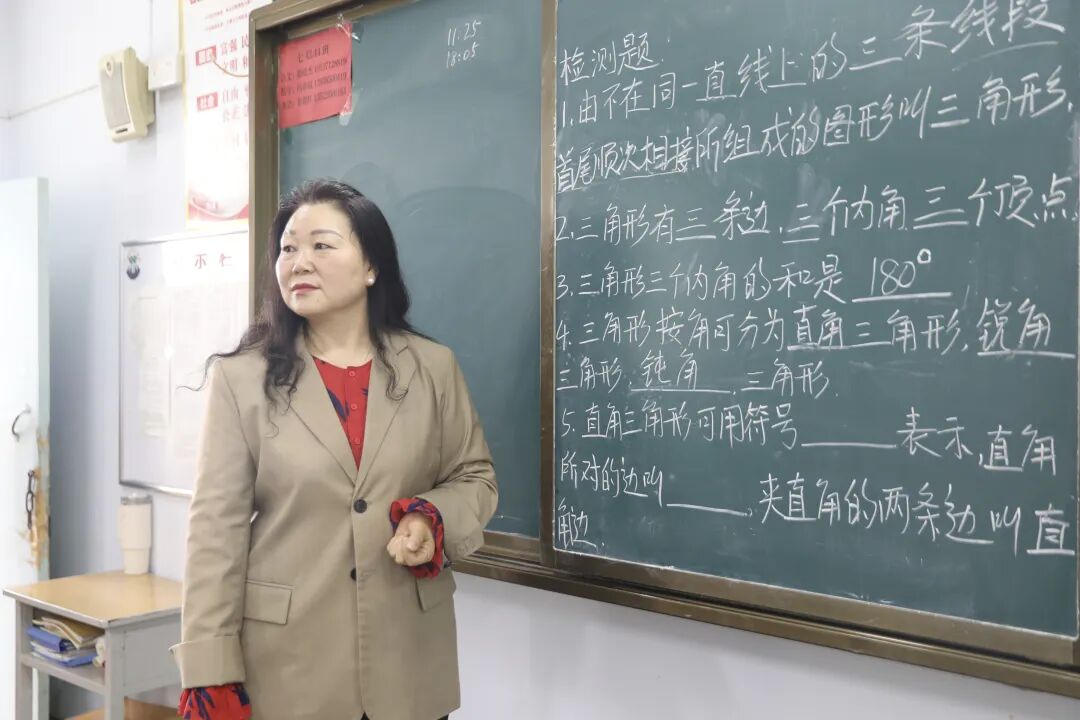 11:25
18:05
七七44班
富强 民
文明 和
自由 平
检测题:
1.由不在同一直线上的三条线段
首尾顺次相接所组成的图形叫三角形.
2.三角形有三条边.三个内角.三个顶点.
3.三角形三个内角的和是 180°
4.三角形按角可分为直角三角形,锐角
三角形.钝角.三角形.
5.直角三角形可用符号____表示,直角
所对的边叫____,夹直角的两条边叫直
角边.